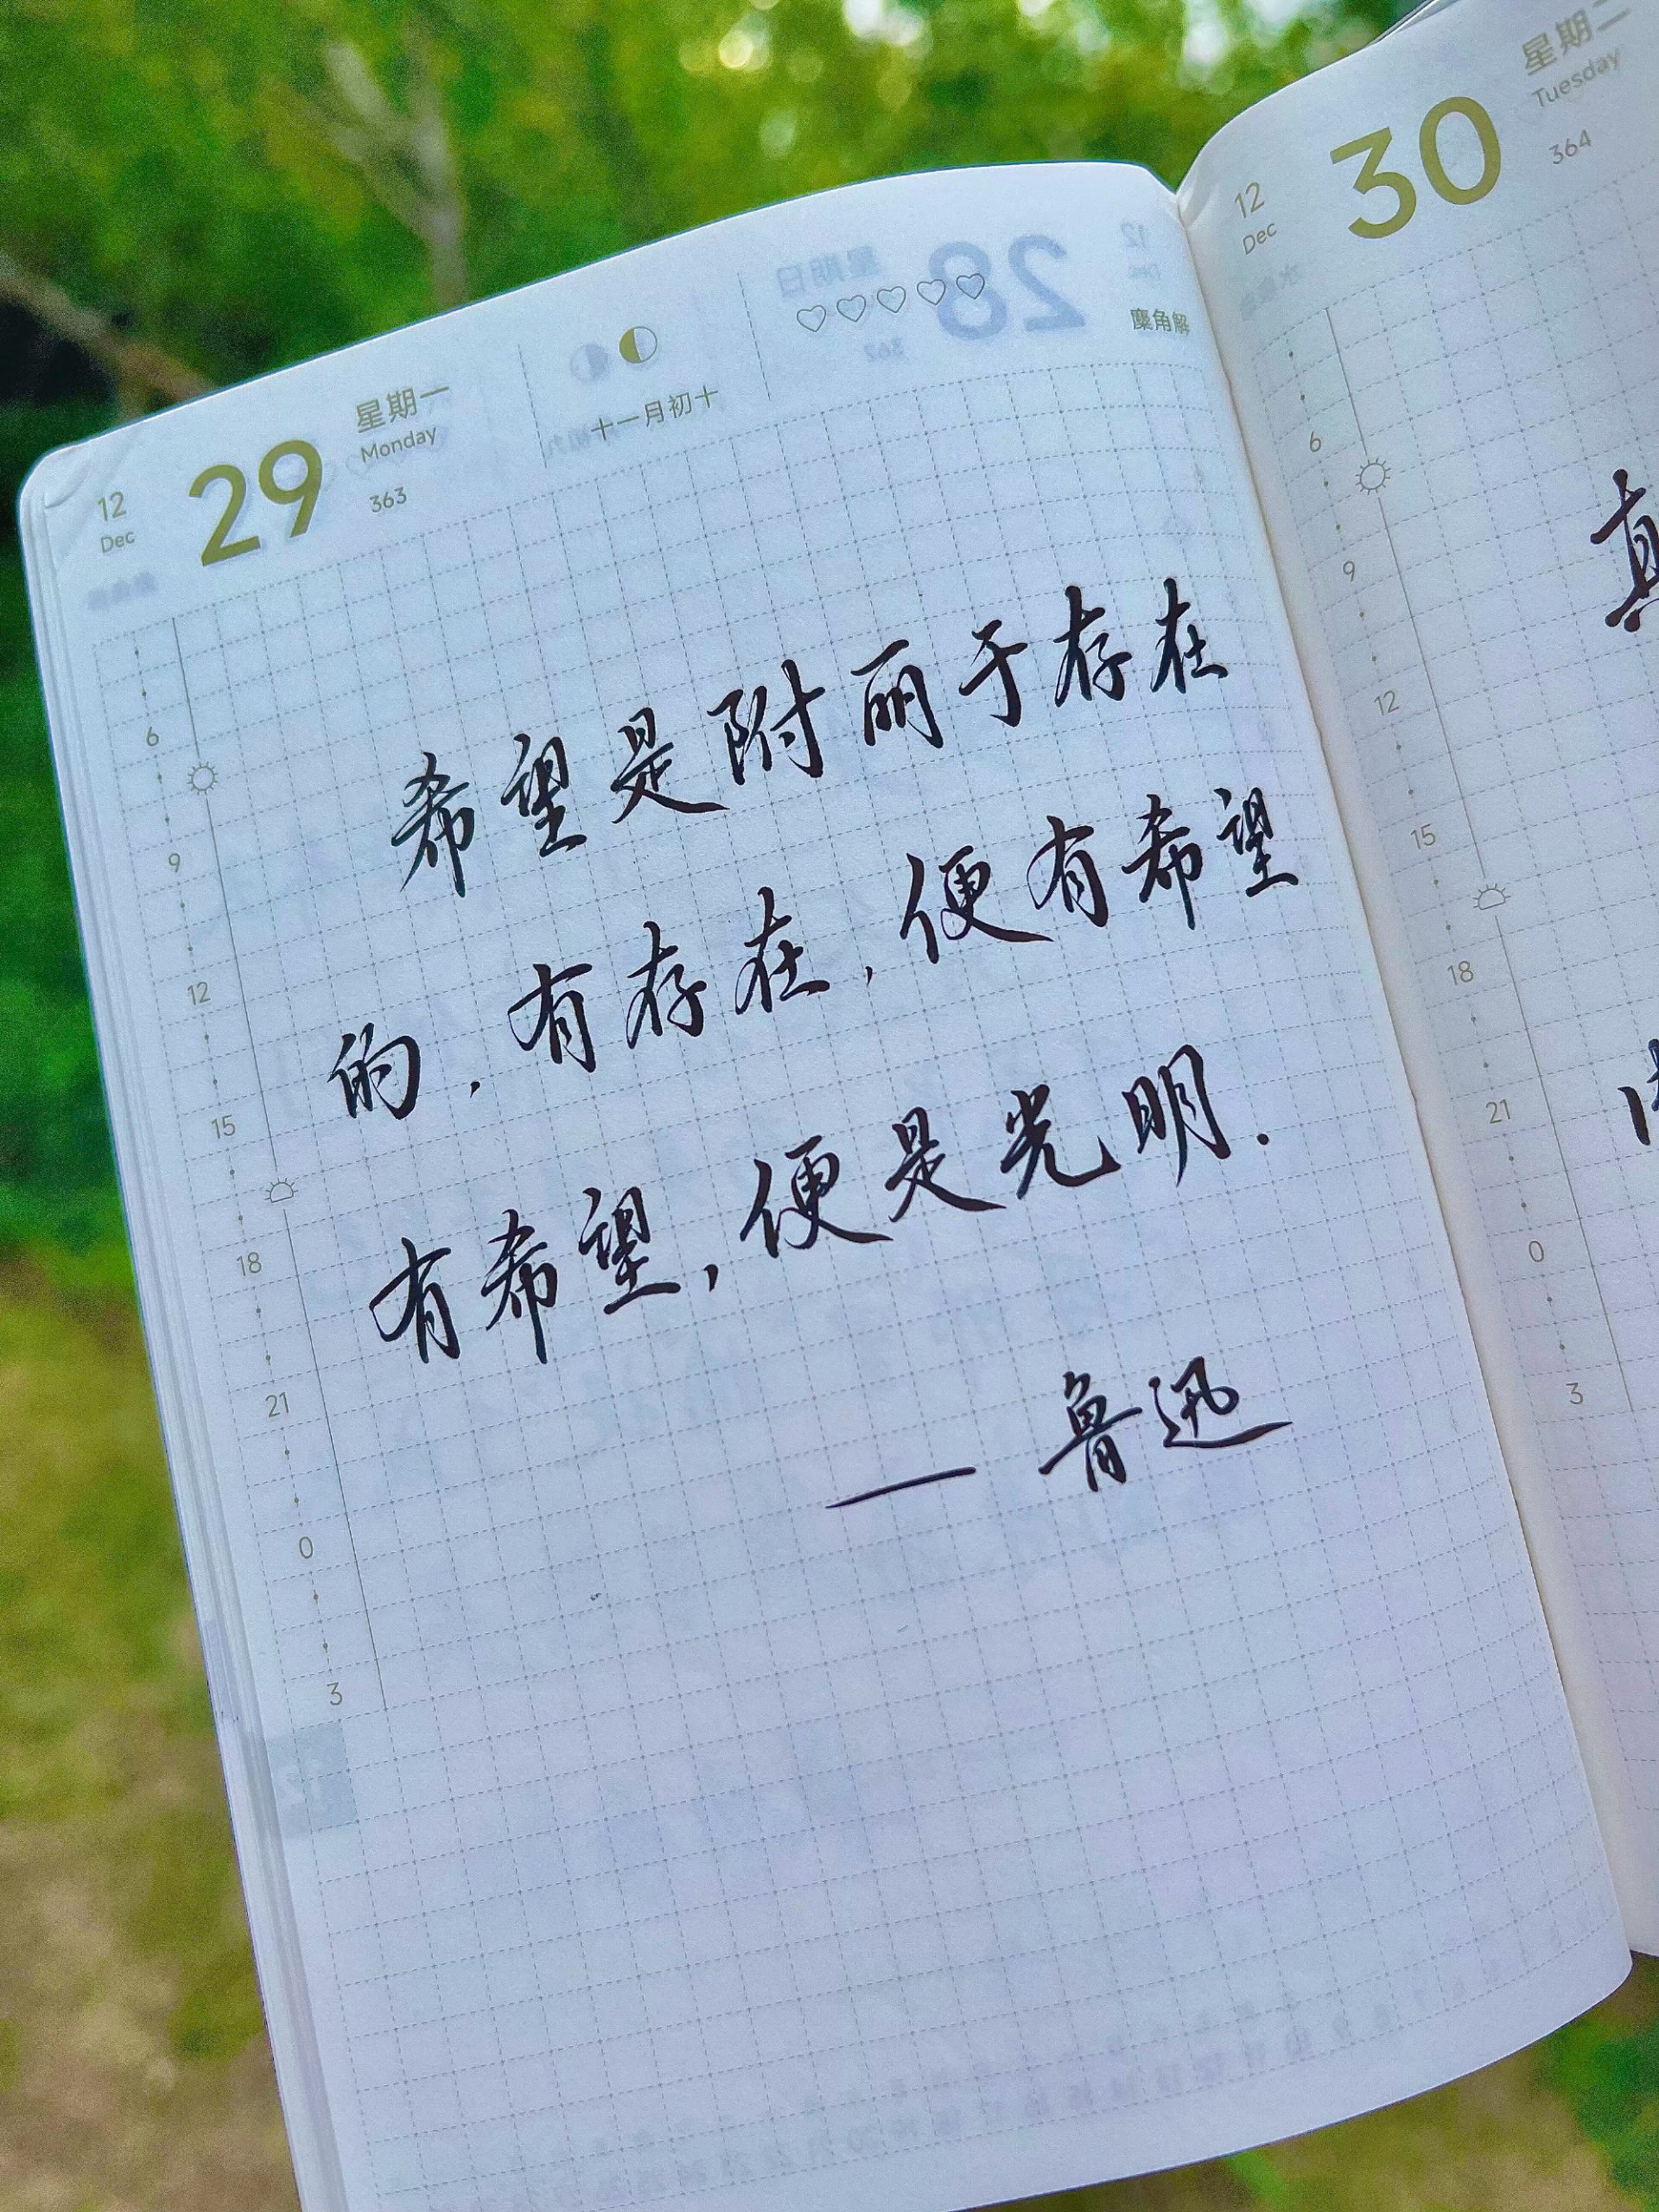 12
Dec
29
星期一
Monday
363
十一月初十
麋角解
6
9
12
15
18
21
0
3
希望是附丽于存在
的,有存在,便有希望
有希望,便是光明.
— 鲁迅
12
Dec
30
星期二
Tuesday
364
6
9
12
15
18
21
0
3
真